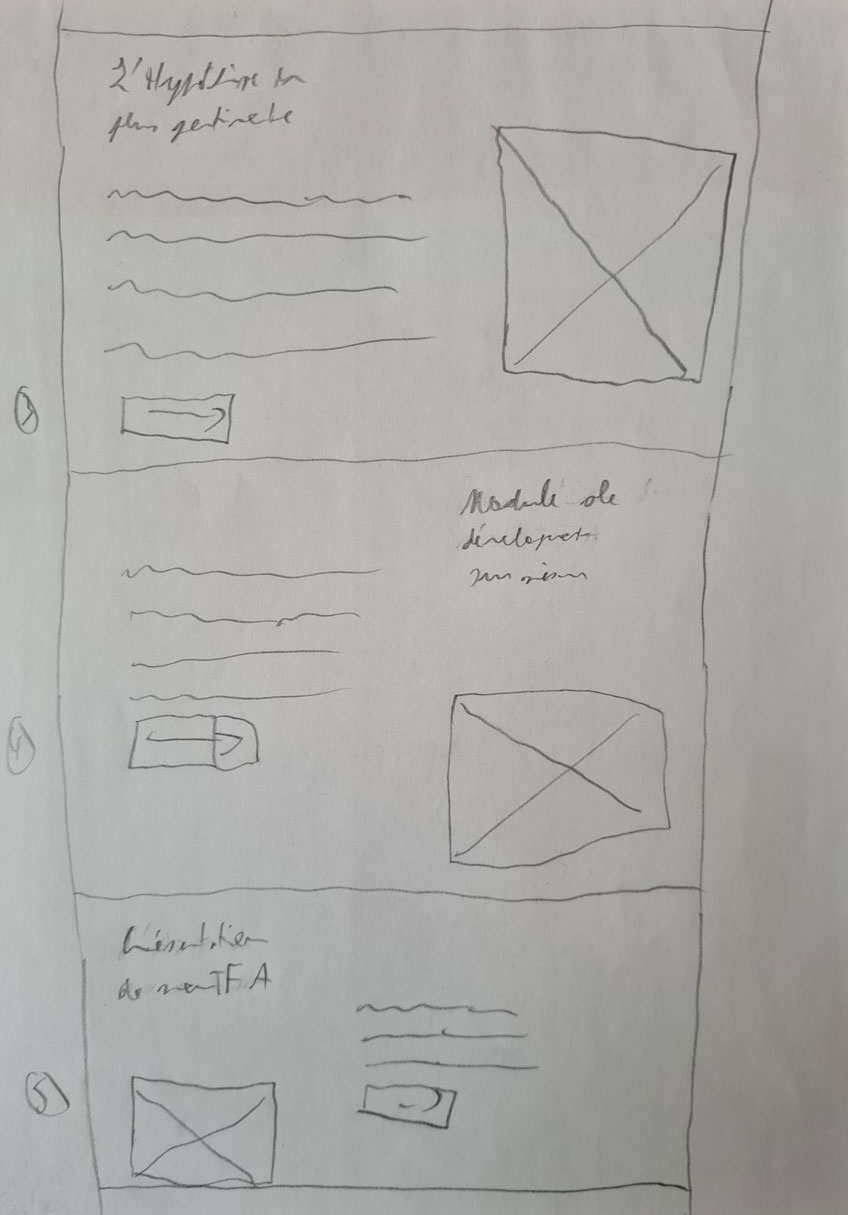 L'Hypothèse la
plus pertinente
3
Module de
développement
4
Présentation
de mon TFA
5